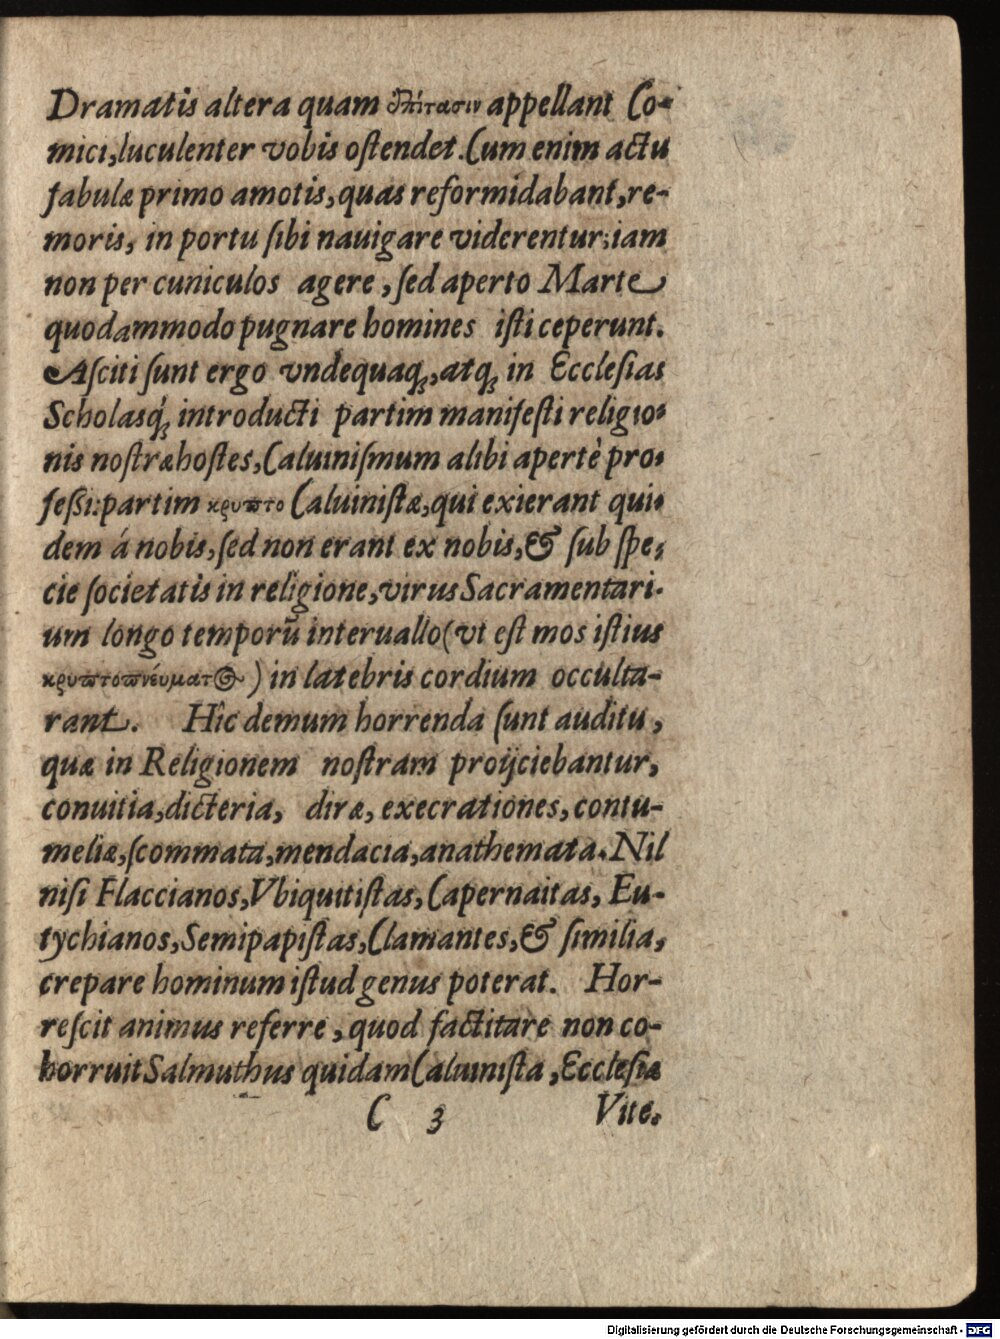 Dramatis altera quam ἐπίτασιν appellant Co-
mici, luculenter vobis oſtendet. Cum enim actu
fabulæ primo amotis, quas reformidabant, re-
moris, in portu ſibi nauigare viderentur; iam
non per cuniculos agere, ſed aperto Marte
quodammodo pugnare homines iſti ceperunt.
Aſciti ſunt ergo vndequaq́;, atq́; in Eccleſias
Scholasq́; introducti partim manifeſti religio-
nis noſtræ hoſtes, Caluiniſmum alibi apertè pro-
feſsi: partim κρυπτο Caluiniſtæ, qui exierant qui-
dem á nobis, ſed non erant ex nobis, & ſub ſpe-
cie ſocietatis in religione, virus Sacramentari-
um longo temporũ interuallo (vt eſt mos iſtius
κρυπτοπνέυματος) in latebris cordium occulta-
rant. Hîc demum horrenda ſunt auditu,
quæ in Religionem noſtram proijciebantur,
conuitia, dicteria, diræ, execrationes, contu-
meliæ, ſcommata, mendacia, anathemata. Nil
niſi Flaccianos, Vbiquitiſtas, Capernaitas, Eu-
tychianos, Semipapiſtas, Clamantes, & ſimilia,
crepare hominum iſtud genus poterat. Hor-
reſcit animus referre, quod factitare non co-
horruit Salmuthus quidam Caluiniſta, Eccleſiæ
C 3 Vite-
Digitalisierung gefördert durch die Deutsche Forschungsgemeinschaft - DFG